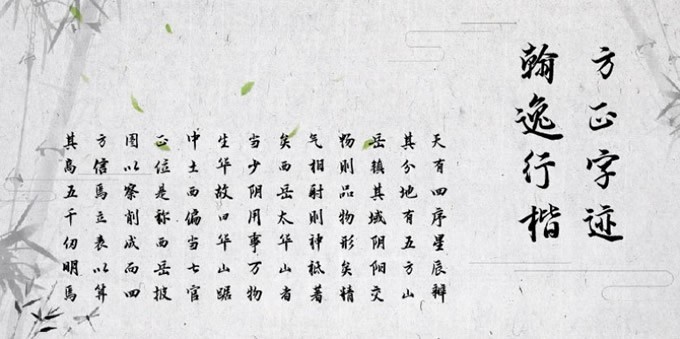 方正字迹
翰逸行楷
天有四序星辰辨
其分地有五方山
岳镇其域阴阳交
畅则品物形矣精
气相射则神祇著
矣西岳太华山者
当少阴用事万物
生华故曰华山踞
中土西偏当七宫
正位是称西岳披
图以察削成而四
方信焉立表以算
其高五千仞明焉